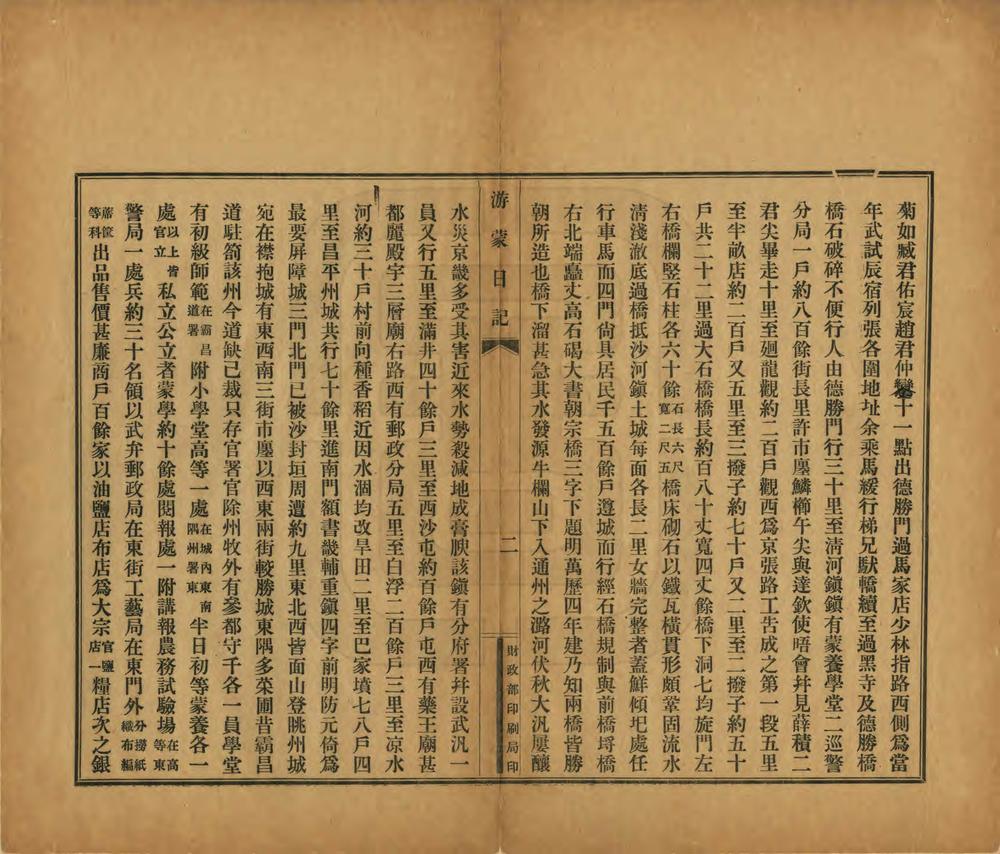 菊如臧君佑宸趙君仲鑾十一點出德勝門過馬家店少林指路西側爲當
年武試辰宿列張各圍地址余乘馬緩行梯兄馱轎續至過黑寺及德勝橋
橋石破碎不便行人由德勝門行三十里至淸河鎭鎭有蒙養學堂二巡警
分局一戶約八百餘街長里許市廛鱗櫛午尖與達欽使晤會幷見薛積二
君尖畢走十里至廻龍觀約二百戶觀西爲京張路工吿成之第一段五里
至半畝店約二百戶又五里至三撥子約七十戶又二里至二撥子約五十
戶共二十二里過大石橋橋長約百八十丈寬四丈餘橋下洞七均旋門左
右橋欄竪石柱各六十餘石長六尺寬二尺五橋床砌石以鐵瓦橫貫形頗鞏固流水
淸淺澈底過橋抵沙河鎭土城每面各長二里女牆完整者蓋鮮傾圮處任
行車馬而四門尙具居民千五百餘戶遵城而行經石橋規制與前橋埒橋
右北端矗丈高石碣大書朝宗橋三字下題明萬歷四年建乃知兩橋皆勝
朝所造也橋下溜甚急其水發源牛欄山下入通州之潞河伏秋大汎屢釀
游蒙日記
二
財政部印刷局印
水災京畿多受其害近來水勢殺減地成膏腴該鎭有分府署幷設武汎一
員又行五里至滿井四十餘戶三里至西沙屯約百餘戶屯西有藥王廟甚
都麗殿宇三層廟右路西有郵政分局五里至白浮二百餘戶三里至凉水
河約三十戶村前向種香稻近因水涸均改旱田二里至巴家墳七八戶四
里至昌平州城共行七十餘里進南門額書畿輔重鎭四字前明防元倚爲
最要屏障城三門北門已被沙封垣周遭約九里東北西皆面山登眺州城
宛在襟抱城有東西南三街市廛以西東兩街較勝城東隅多菜圃昔霸昌
道駐箚該州今道缺已裁只存官署官除州牧外有參都守千各一員學堂
有初級師範在霸昌道署附小學堂高等一處在城內東南隅州署東半日初等蒙養各一
處以上皆官立私立公立者蒙學約十餘處閱報處一附講報農務試驗場在高等東
警局一處兵約三十名領以武弁郵政局在東街工藝局在東門外分撈紙織布編
蓆筐等科出品售價甚廉商戶百餘家以油鹽店布店爲大宗官鹽店一糧店次之銀